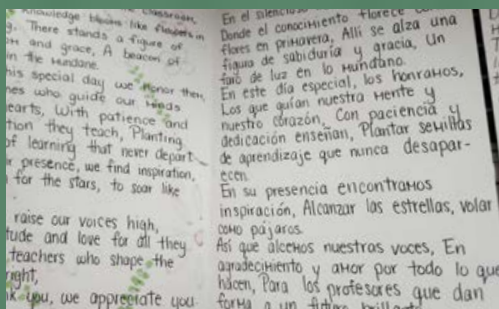 classroom,
Knowledge blooms like flowers in
g. There stands a figure of
and grace, A beacon of
in the mundane.
his special day we honor them,
nes who guide our minds
earts, With patience and
tion they teach, Planting
of learning that never depart
r presence, we find inspiration,
for the stars, to soar like
raise our voices high,
tude and love for all they
teachers who shape the
right,
nk you, we appreciate you
En el silencio
Donde el conocimiento florece
flores en primavera, Allí se alza una
figura de sabiduría y gracia, Un
faro de luz en lo mundano.
En este día especial, los honramos,
Los que guían nuestra mente y
nuestro corazón, Con paciencia y
dedicación enseñan, Plantar semillas
de aprendizaje que nunca desapar-
ecen.
En su presencia encontramos
inspiración, Alcanzar las estrellas, volar
como pájaros.
Así que alcemos nuestras voces, En
agradecimiento y amor por todo lo que
hacen, Para los profesores que dan
forma a un futuro brillante